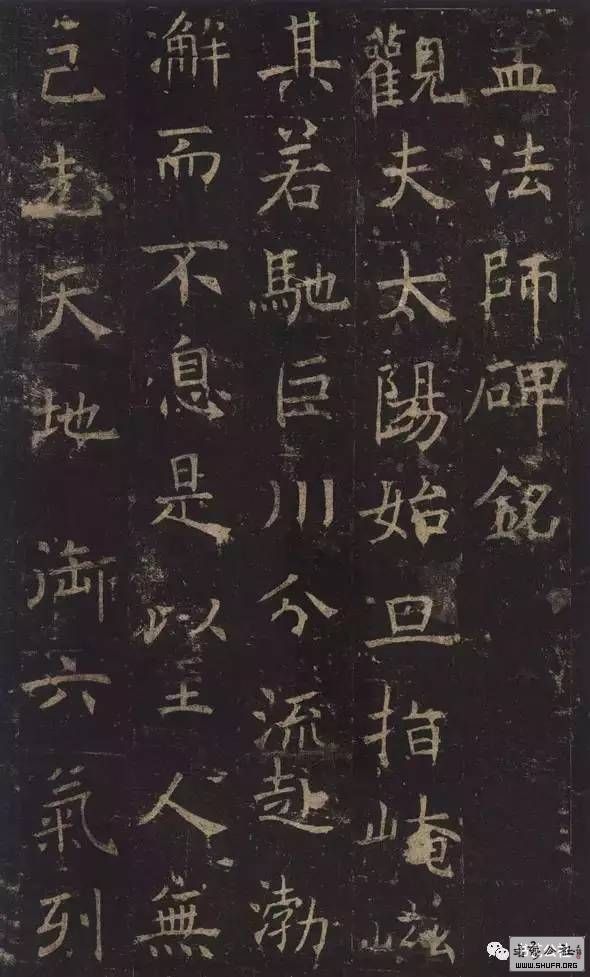 孟法師碑銘
觀夫太陽始旦指崦嵫
其若馳巨川分流赴渤
澥而不息是以至人無
己先天地 御六氣列
书法公社
WWW.SHUFA.ORG